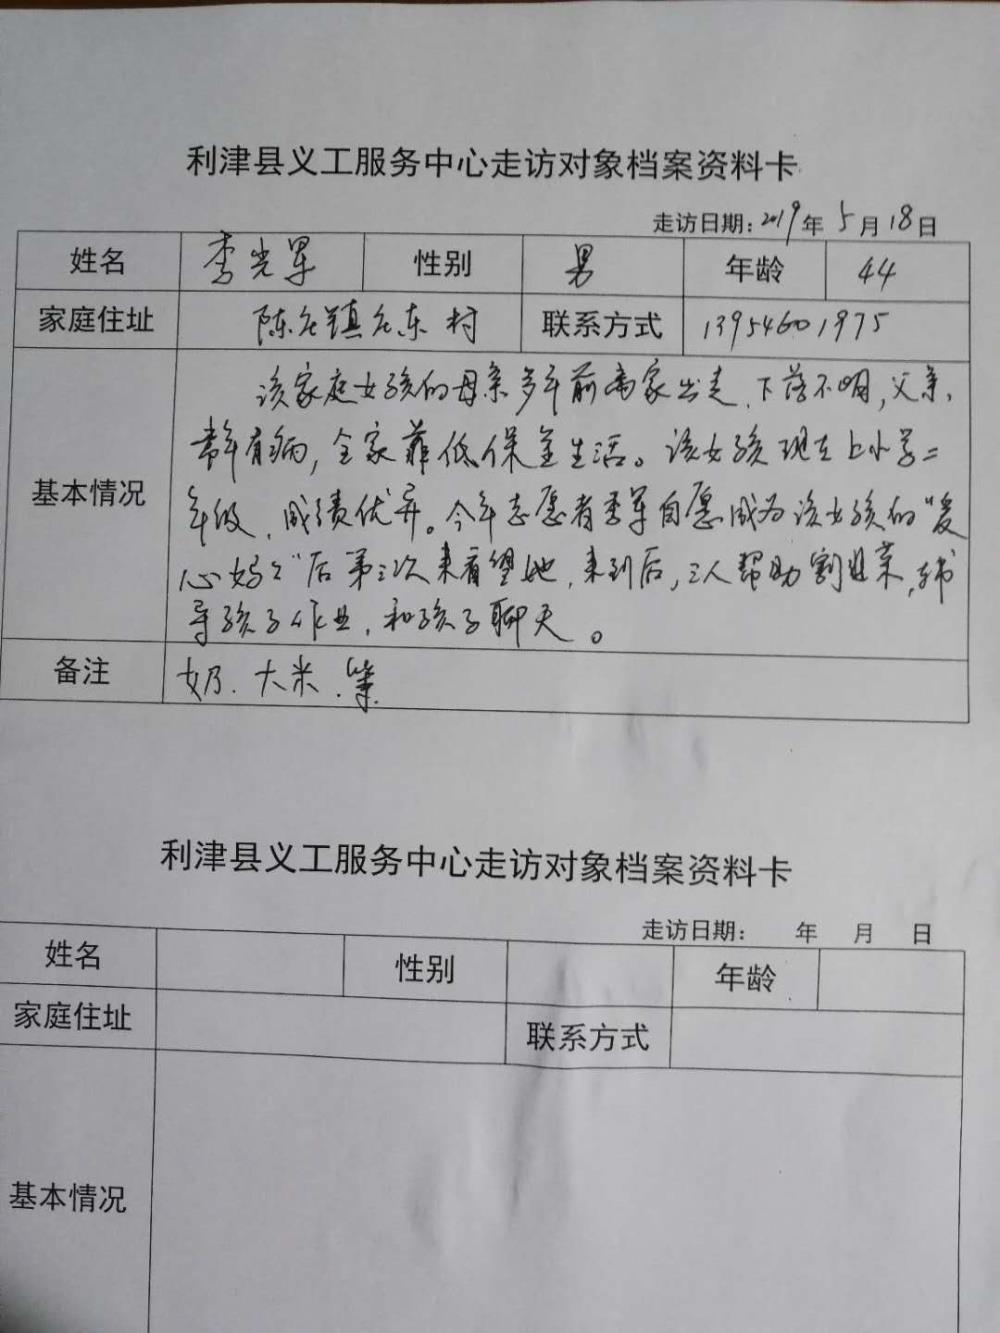 利津县义工服务中心走访对象档案资料卡
走访日期: 2019年 5月 18日
姓名 李光军 性别 男 年龄 44
家庭住址 陈庄镇庄东村 联系方式 13954601975
该家庭女孩的母亲多年前离家出走,下落不明,父亲,
常年有病,全家靠低保金生活。该女孩现在上小学二
基本情况
年级,成绩优异。今年志愿者李军自愿成为该女孩的“爱
心妈妈”后第三次来看望她,来到后,三人帮助割韭菜,辅
导孩子作业,和孩子聊天。
备注 奶.大米.等
利津县义工服务中心走访对象档案资料卡
走访日期: 年 月 日
姓名 性别 年龄
家庭住址 联系方式
基本情况